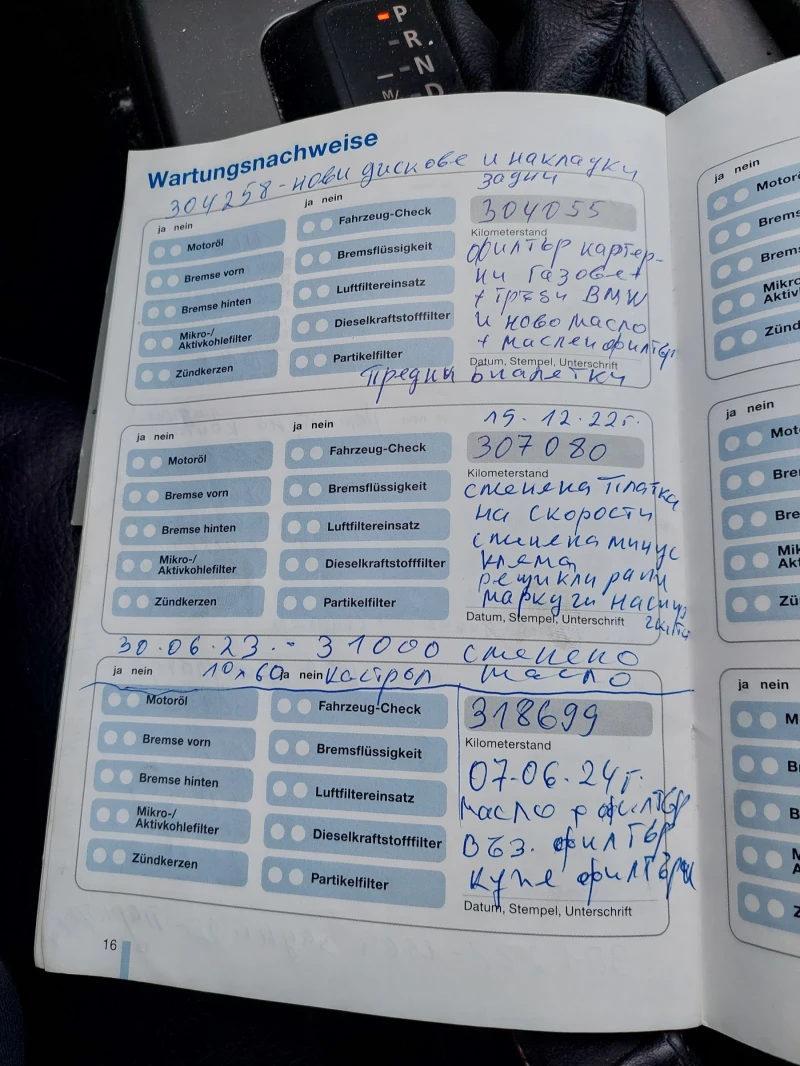 P
R
N
D
M/
Wartungsnachweise
304258 - нови дискове и накладки
задни
ja nein
ja nein
Motoröl
Fahrzeug-Check
304055
Kilometerstand
Bremse vorn
Bremsflüssigkeit
филтър картер-
ни газове +
Bremse hinten
Luftfiltereinsatz
+ тръби BMW
и ново масло
Mikro-/
Aktivkohlefilter
Dieselkraftstofffilter
+ маслен филтър
Zündkerzen
Partikelfilter
Datum, Stempel, Unterschrift
Предни биалетки
19.12.22г.
ja nein
ja nein
Motoröl
Fahrzeug-Check
307080
Kilometerstand
Bremse vorn
Bremsflüssigkeit
сменена платка
на скорости
Bremse hinten
Luftfiltereinsatz
сменена минус
клема
Mikro-/
Aktivkohlefilter
Dieselkraftstofffilter
маркучи
Zündkerzen
Partikelfilter
Datum, Stempel, Unterschrift
30.06.23. - 31000 сменено
масло
10x60 кастрол
ja nein
ja nein
Motoröl
Fahrzeug-Check
318699
Kilometerstand
Bremse vorn
Bremsflüssigkeit
07.06.24г.
Bremse hinten
Luftfiltereinsatz
масло филтър
Mikro-/
Aktivkohlefilter
Dieselkraftstofffilter
въз. филтър
Zündkerzen
Partikelfilter
купе филтри
Datum, Stempel, Unterschrift
16
ja nein
ja nein
ja nein